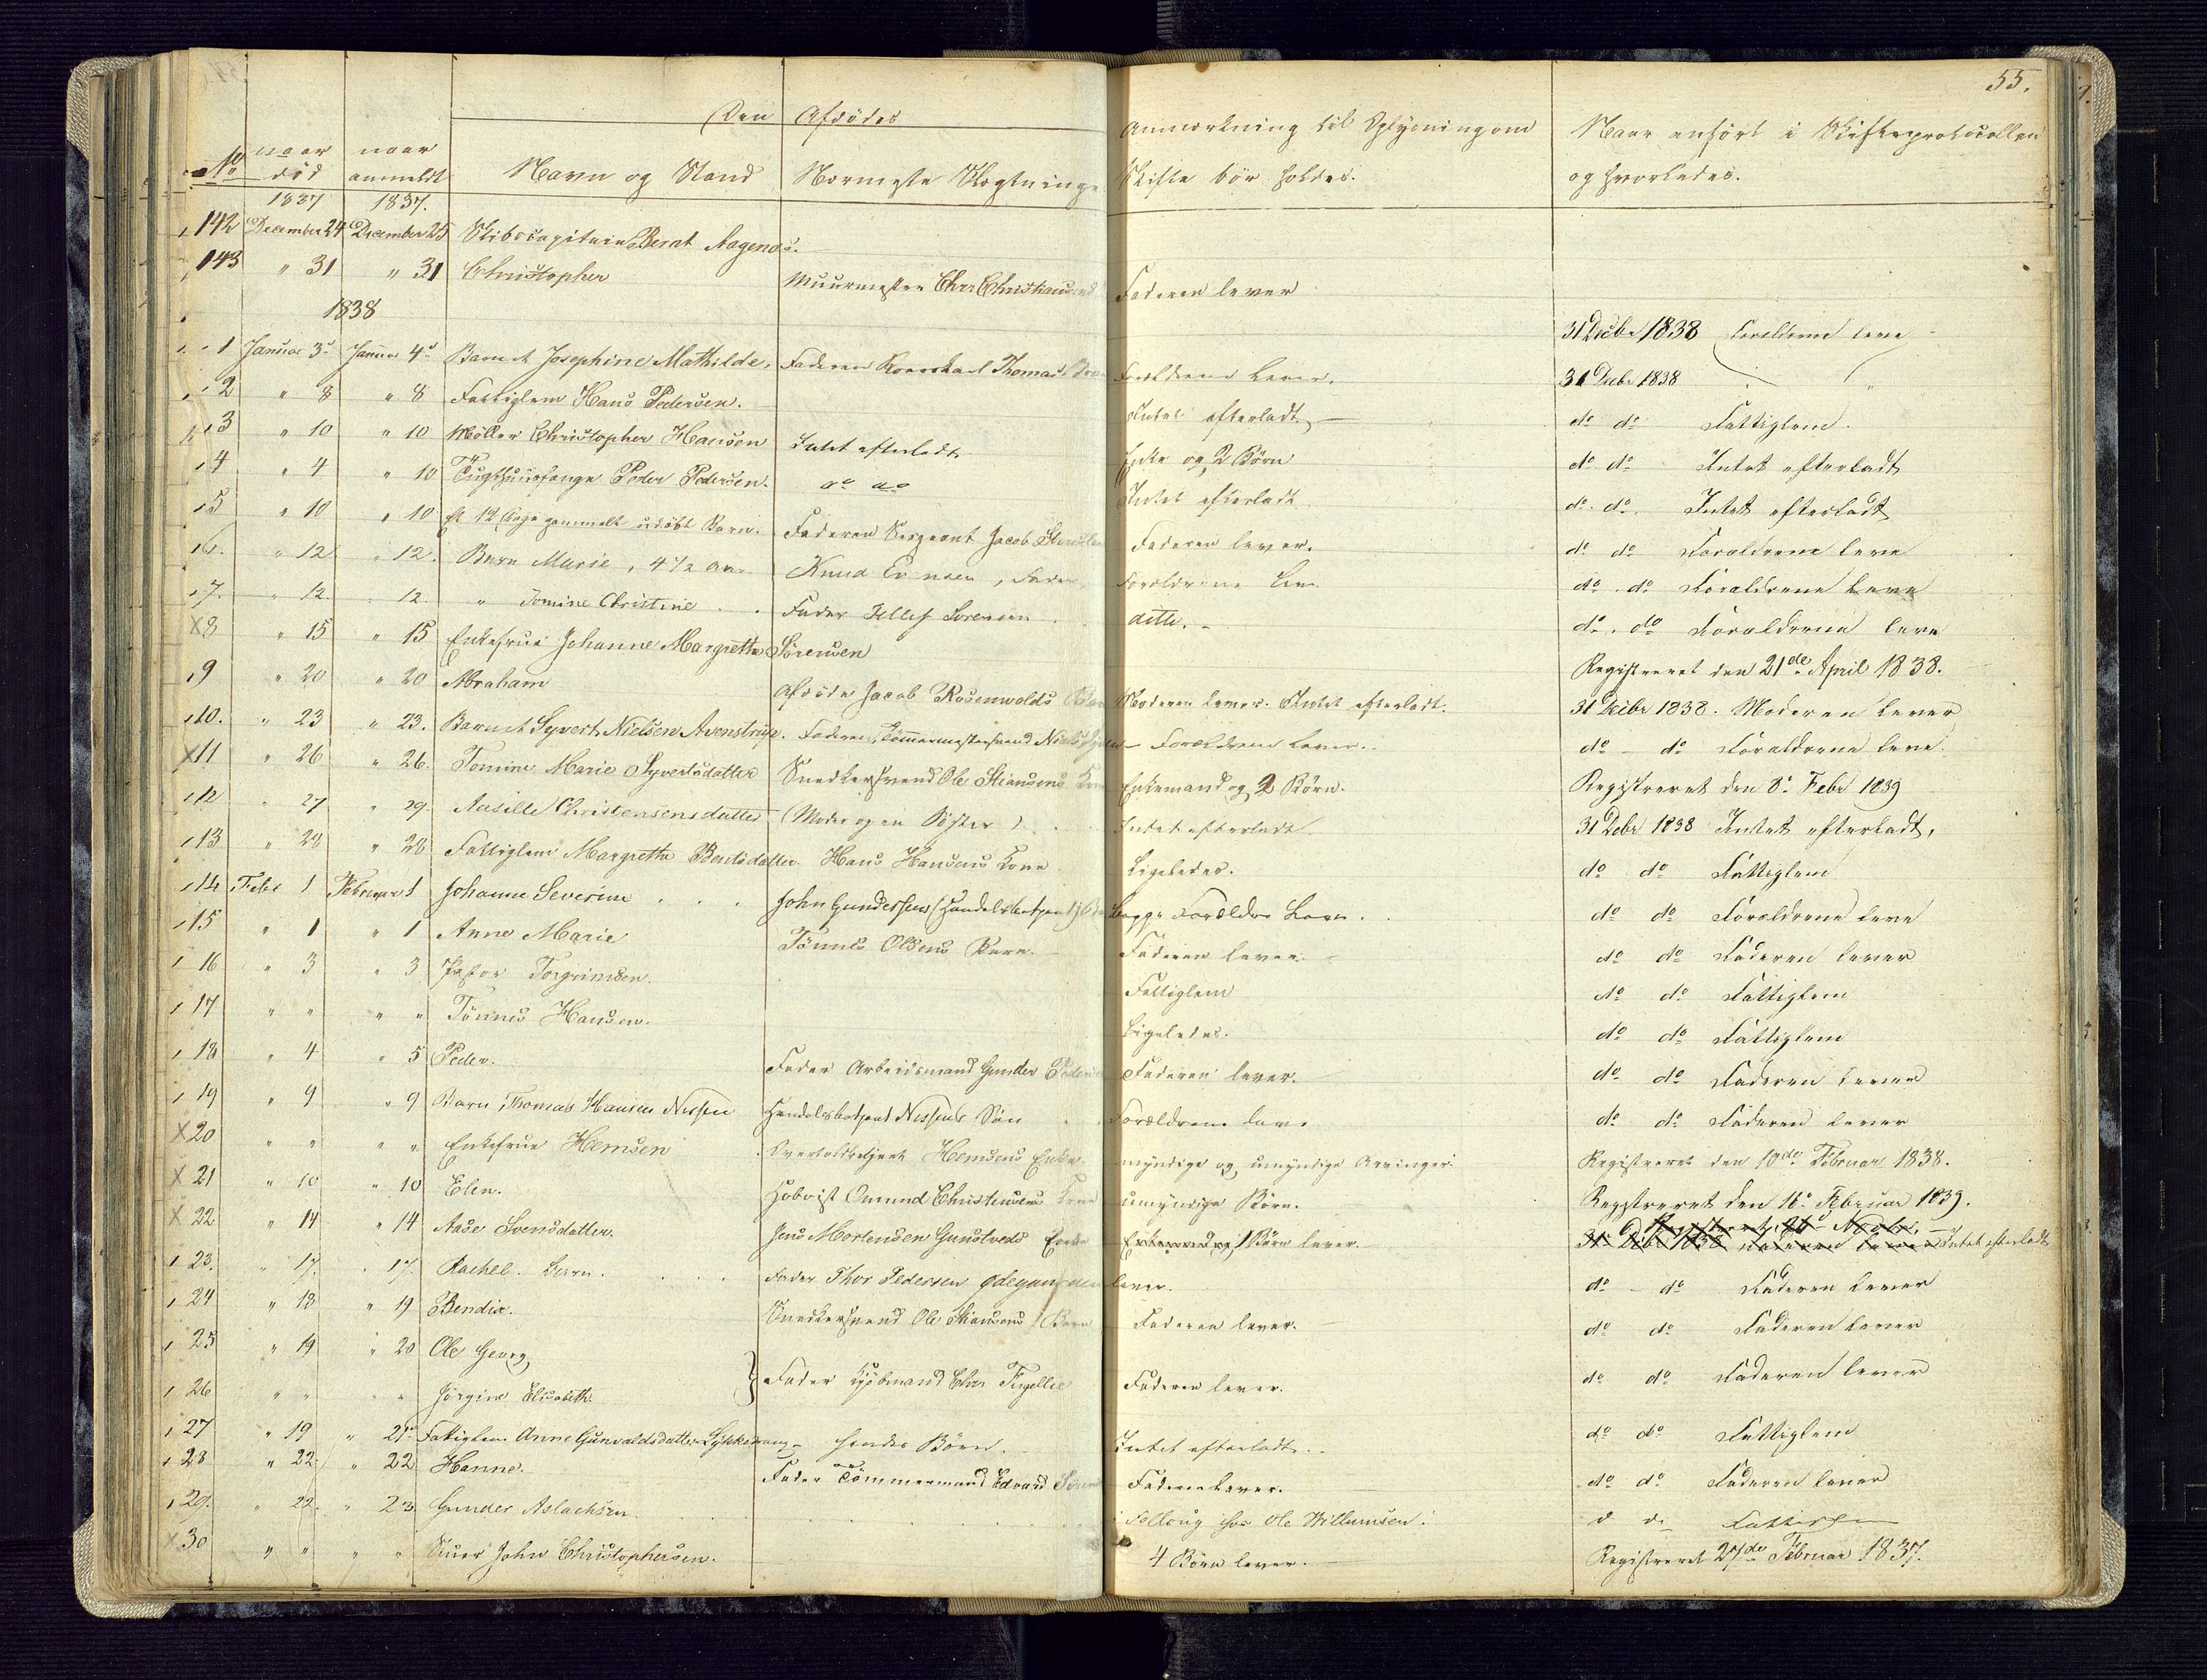 55.
Den Afdödes
No naar död naar anmeldt Navn og Stand Nærmeste Slægtninge Anmærkning til Oplysning om Skifte bör holdes. Naar anfört i Skifteprotocollen og hvorledes.
1837 1837.
142 December 24 December 25 Skibscapitain Berat Aagenæs.
143 " 31 " 31 Christopher Muurmester Chr Christiansens Faderen lever
1838
1 Januar 3 Januar 4 Barnet Josephine Mathilde. Faderen Thomas Forældrene lever. 31 Decbr 1838 Forældrene leve
2 " 8 " 8 Fattiglem Hans Pedersen. Intet efterladt 31 Decbr 1838 Fattiglem.
3 " 10 " 10 Möller Christopher Hansen Intet efterladt Enke og 2 Börn do do Intet efterladt
4 " 4 " 10 Tugthuusfange Peder Pedersen. do do Intet efterladt do do Intet efterladt
5 " 10 " 10 Et 12 Dage gammelt udöbt Barn. Faderen Sergeant Jacob Faderen lever. do do Forældrene leve
6. " 12 " 12. Barn Marie, 4 1/2 Aar Knud Evensen, Fader Forældrene lev do do Forældrene leve
7. " 12 " 12. " Tomine Christine Fader Tellef Sorensen ditto. do do Forældrene leve
X8 " 15 " 15 Enkefrue Johanne Margrethe Sörensen Registreret den 21de April 1838.
9 " 20 " 20 Abraham Afdöde Jacob Rosenvolds Moderen lever. Intet efterladt. 31 Decbr 1838. Moderen lever
10. " 23 " 23. Barnet Syvert Nielsen Avenstrup. Faderen, Tömmermestersvend Niels Forældrene lever. do do Forældrene leve.
X11 " 26 " 26. Tomine Marie Syvertsdatter Snedkersvend Ole Stiansens Kone Enkemand og 2 Börn. Registreret den 8 Febr 1839
12 " 27 " 29. Aasille Christensensdatter (Moder og en Söster) Intet efterladt 31 Debr 1838 Intet efterladt,
13 " 28 " 28 Fattiglem Margrethe Bentsdatter Hans Hansens Kone Ligeledes. do do Fattiglem
14 Febr 1 Februar 1 Johanne Severine John Gundersen (Handelsbetjent) Begge Forældre leve. do do Forældrene leve
15 " 1 " 1 Anne Marie Tönnes Olsens Barn. Faderen lever. do do Faderen lever
16 " 3 " 3 Torgrimsen. Fattiglem do do Fattiglem
17 " " " " Tönnes Hansen. Ligeledes. do do Fattiglem
18 " 4 " 5 Peder. Fader Arbeidsmand Gunder Pedersen Faderen lever. do do Faderen lever
19 " 9 " 9 Barn, Thomas Hansen Nissen Handelsbetjent Nissens Sön Forældrene leve do do Faderen lever
X20 " " " " Enkefrue Hemsen Overtoldbetjent Hemsens Enke. myndige og umyndige Arvinger. Registreret den 10de Februar 1838.
X 21 " 10 " 10 Elen. Hobvist Omund Christensens Kone umyndige Börn. Registreret den 16. Februar 1839.
X 22 " 14 " 14 Aase Svensdatter. Jens Mortensen Gunstveds Enke Enkemand og 1 Börn lever. 31 Decbr 1838 Intet efterladt
23. " 17. " 17. Rachel. Barn. Fader Thor Pedersen Ødegaard lever. do do Faderen lever
24 " 18 " 19 Bendix. Snedkersvend Ole Stiansens Barn Faderen lever. do do Faderen lever
25 " 19 " 20 Ole Georg
26 " " " " Jörgine Elisabeth. } Fader Kjöbmand Chr Fugellie Faderen lever. do do Faderen lever
27 " 19 " 21 Fattiglem Anne Gunvaldsdatter Lykkedrang hendes Börn. Intet efterladt. do do Fattiglem
28 " 22. " 22 Hanne. Fader Tömmermand Edvard Faderen lever. do do Faderen lever
29. " 22. " 23. Gunder Aslachsen Fellong hos Ole Willumsen. d d
X 30 " " " " Skuer John Christophersen. 4 Börn lever. Registreret 27de Februar 1837.